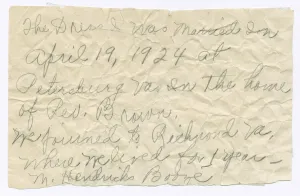 The Dress I Was Married In
April 19, 1924 at
Petersburg Va. In The home
of Rev. Brown.
We to Richmond Va,
Where We lived for 1 year –
M. Hendricks Boone